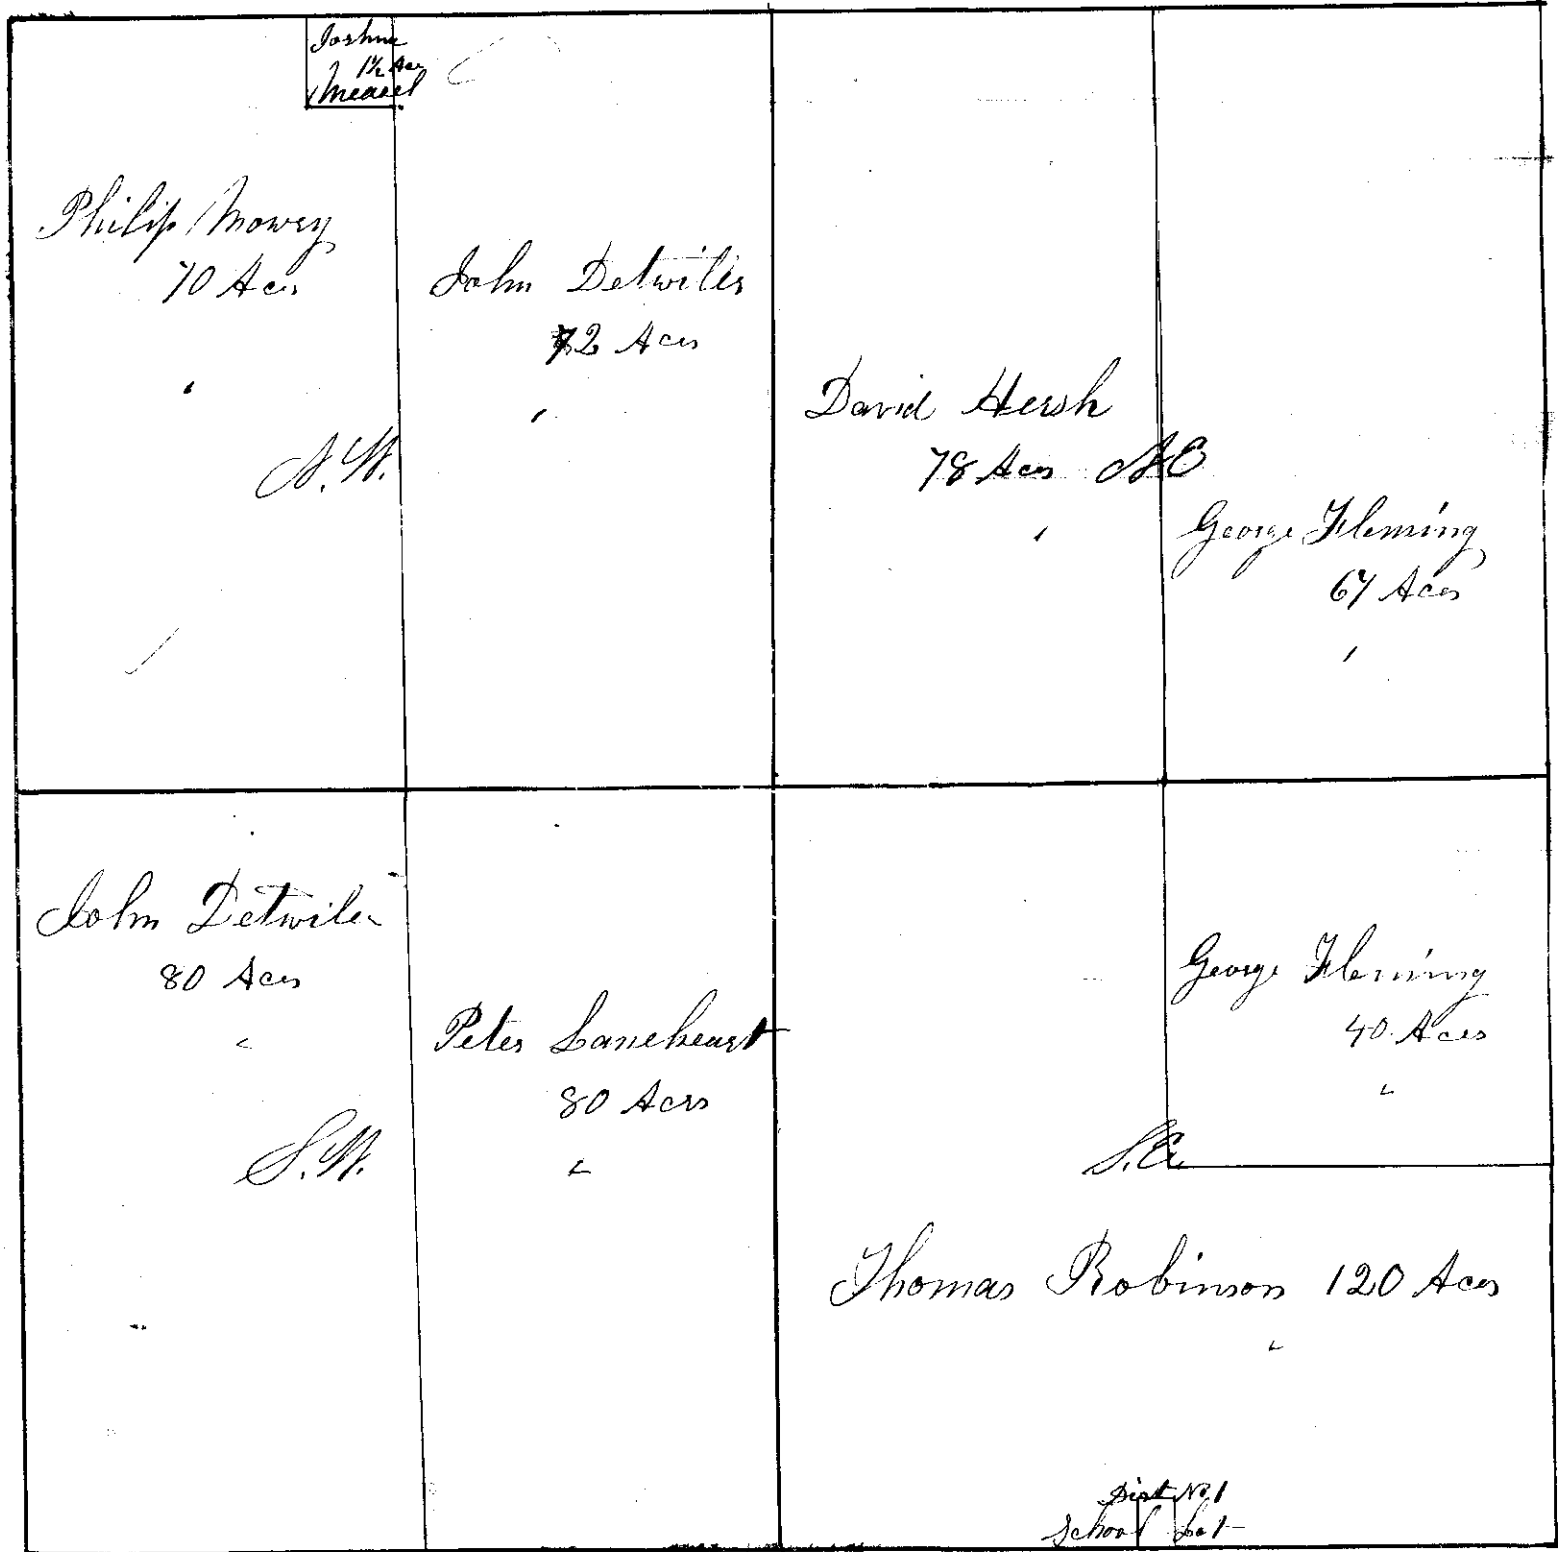 Joshua
1½ Acr
Measel
Philip Mowry
70 Acrs
John Detwiler
72 Acrs
N.W.
David Hersh
78 Acrs
N E
George Fleming
67 Acrs
John Detwiler
80 Acrs
Peter Laneheart
80 Acrs
S.W.
George Fleming
40 Acrs
S.E.
Thomas Robinson 120 Acrs
Dist No. 1
School Lot